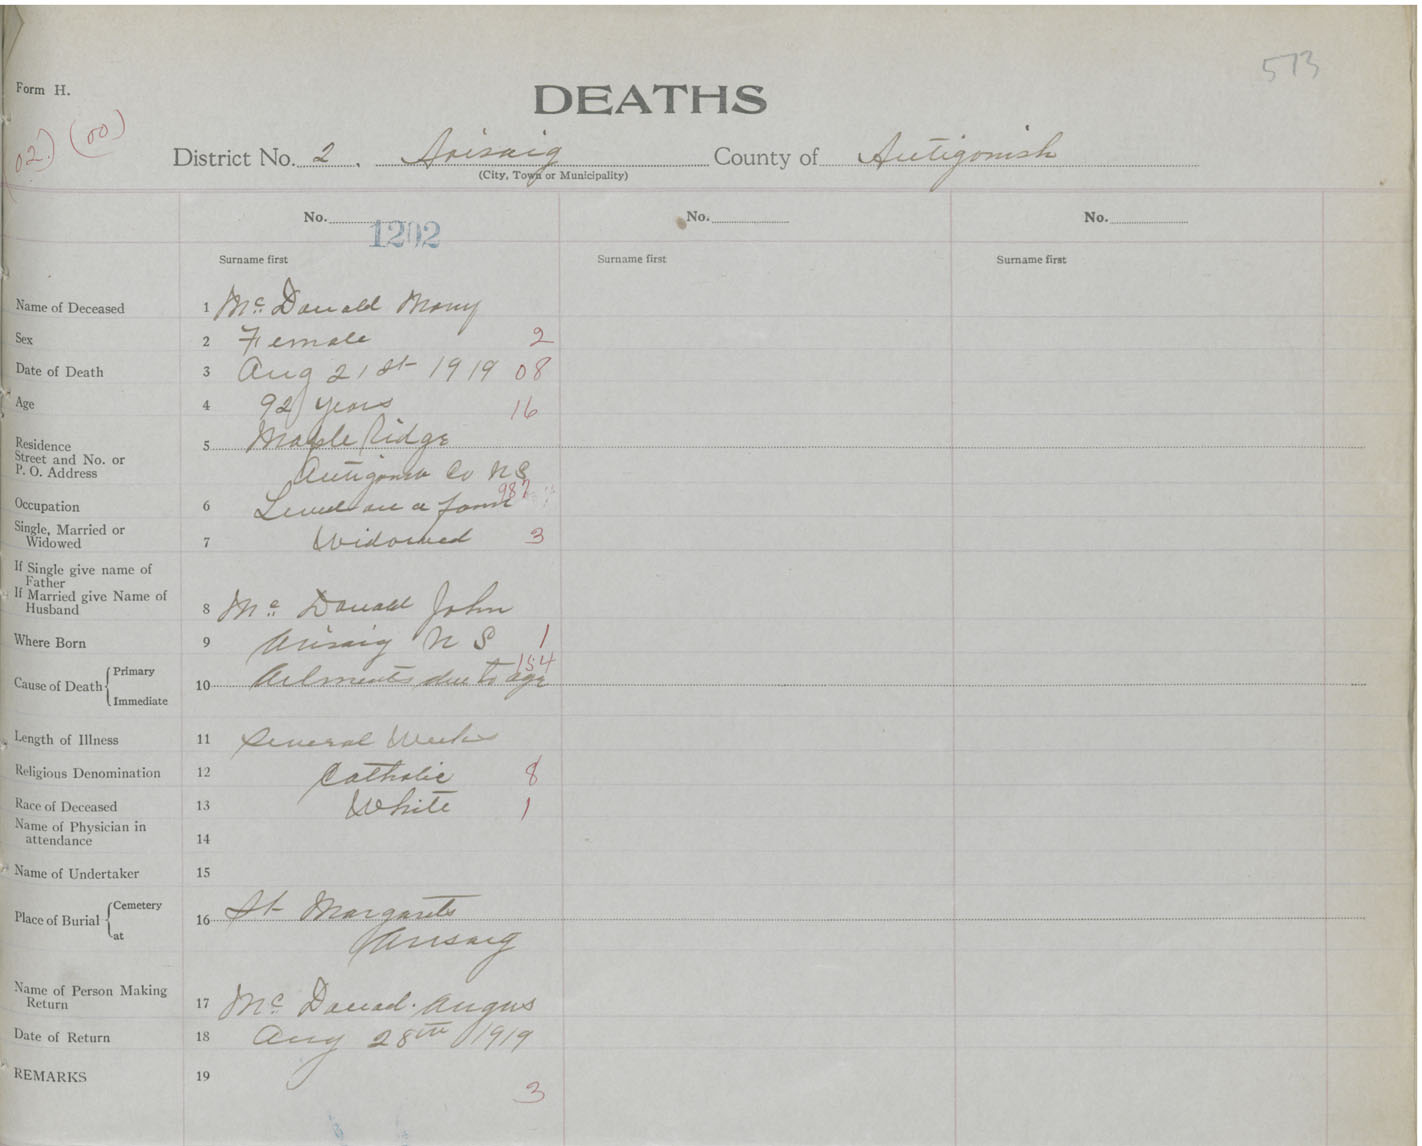 573
Form H.
DEATHS
02.) (00)
District No. 2. Arisaig County of Antigonish
(City, Town or Municipality)
No. 1202 No. No.
Surname first Surname first Surname first
Name of Deceased 1 Mc Donald Mary
Sex 2 Female 2
Date of Death 3 Aug 21st 1919 08
Age 4 92 years 16
Residence 5 Maple Ridge
Street and No. or
P. O. Address Antigonish Co N S
Occupation 6 Lived on a farm 987
Single, Married or
Widowed 7 Widowed 3
If Single give name of
Father
If Married give Name of
Husband 8 Mc Donald John
Where Born 9 Arisaig N S 1
Cause of Death Primary 154
10 Ailments due to age
Immediate
Length of Illness 11 Several Weeks
Religious Denomination 12 Catholic 8
Race of Deceased 13 White 1
Name of Physician in
attendance 14
Name of Undertaker 15
Place of Burial Cemetery 16 St Margarets
at Arisaig
Name of Person Making
Return 17 Mc Donad. Angus
Date of Return 18 Aug 28th 1919
REMARKS 19
3